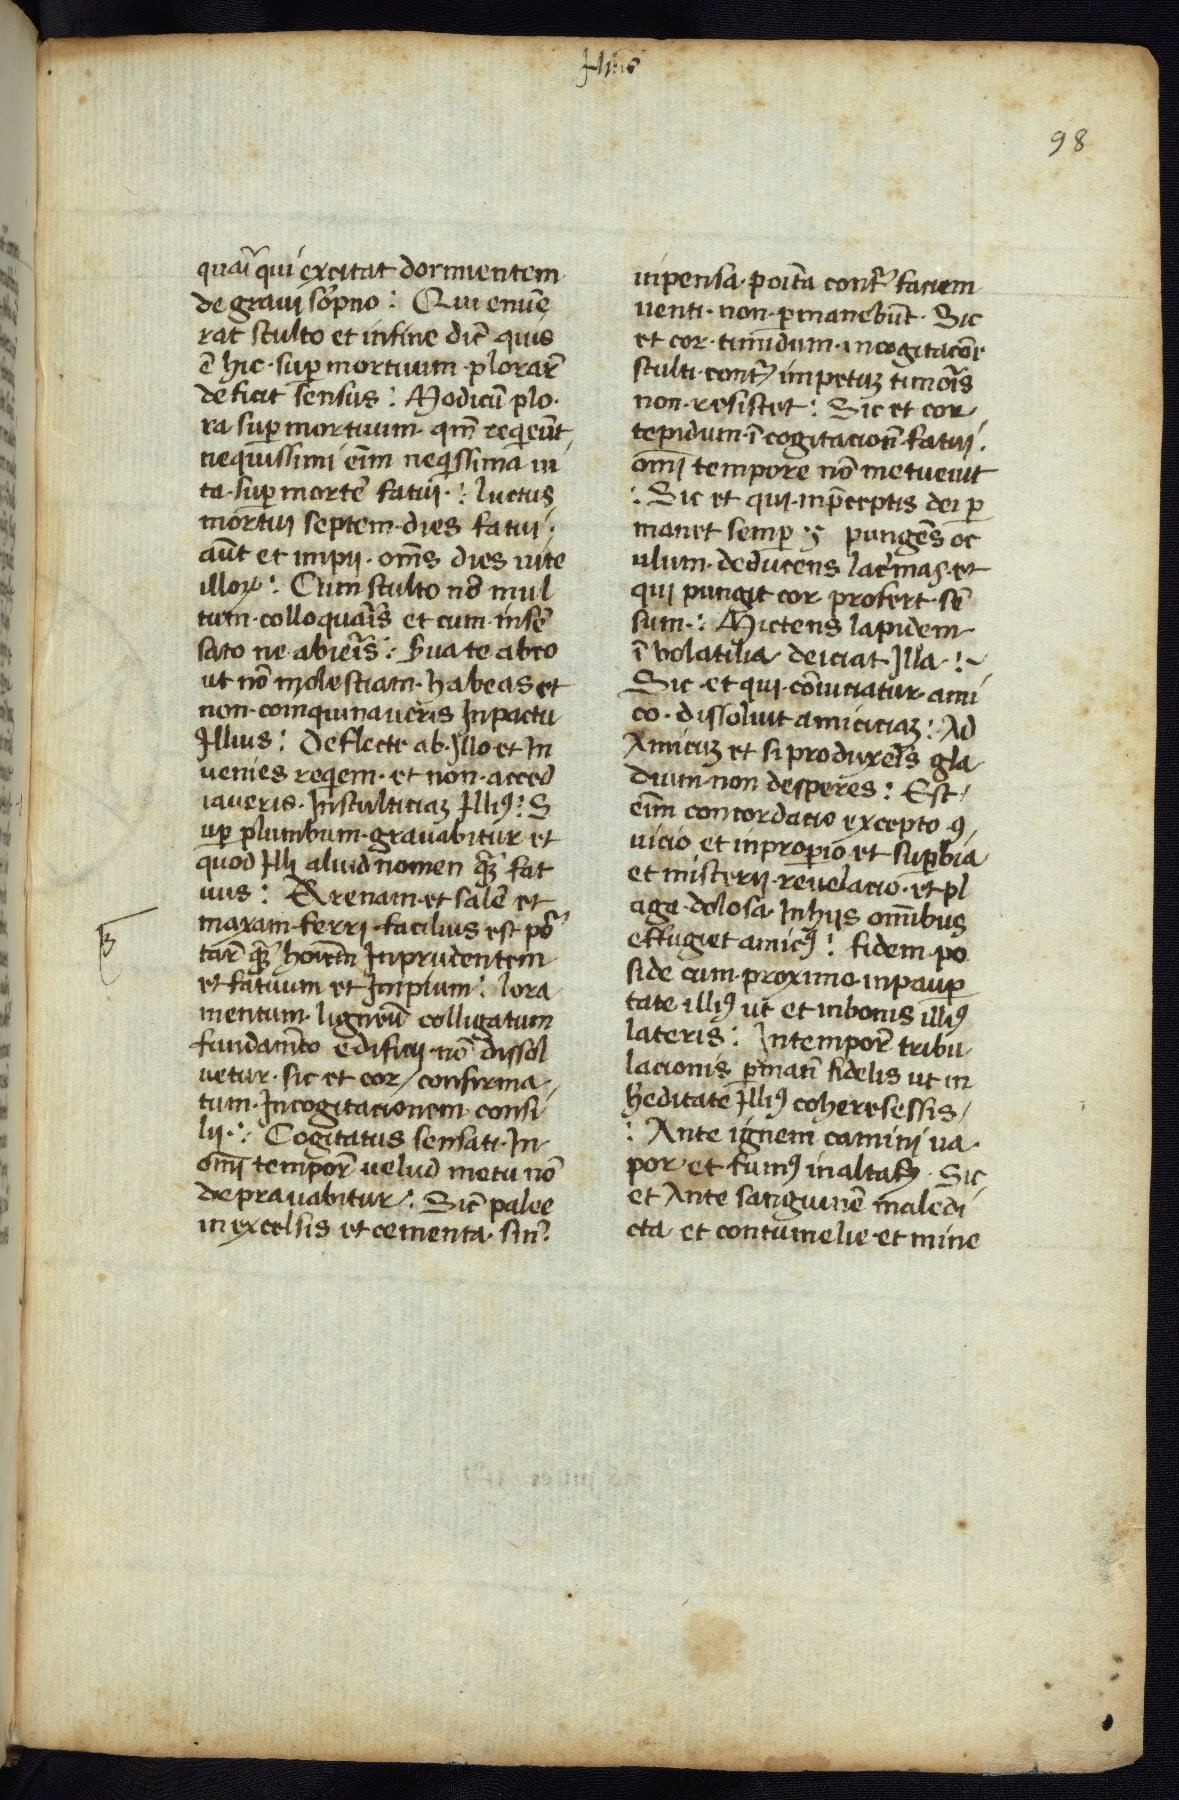 98
quaͣ qui excitat dormientem
de graui so̅pno : Qui enu̅e
rat stulto et in fine dic̅ quis
e̅ hic · sup̲ mortuum · plorar̅
deficit sensus : Modicu̅ plo·
ra sup̲ mortuum · qm̅ req̅eu̅t
nequissimi ei̅m neq̅ssima ui
ta · sup̲ morte̅ fatui · : luctus
mortui septem · dies fatui ·
au̅t et impij · om̅s dies uite
illoꝝ : Cum stulto no̅ mul
tum · colloquar̅s et cum · inse̅
sato ne · abier̅s : Sua te ab eo
ut no̅ molestiam · habeas et
non · coinquinaueris in pactu
Illius : Deflecte ab · Illo et In
uenies req̅em · et non · acced
iaueris · In stulticiaꝫ Illiꝰ : S
up̲ plumbum · grauabitur et
quod Illi aliud nomen qua̅ fat
uus : Arenam · et sale̅ et
maxam · ferri · facilius est por̅
tar̅ qua̅ hoi̅em Inprudentem
et fatuum et Impium : lora
mentum · ligneu̅ colligatum
fundam̅to edificij · no̅ dissol
uetur · sic et cor / confirma
tum · In cogitacionem consi
lij · : Cogitatus sensati · In
omi̅ tempor̅ uelud metu no̅
deprauabitur : Sic̅ palee
in excelsis et cementa · sin̅
inpensa · poita contr̅ faciem
uenti · non · p̲manebu̅t · Sic
et cor · timidum · in cogitaco̅e
stulti · contr̅ impetuꝫ timor̅s
non · resistet : Sic et cor /
tepidum · i̅ cogitacion̅ fatui ·
omi̅ tempore no̅ metueiut
: Sic et qui · in p̅ceptis dei p̲
manet semp̲ · punge̅s oc
ulum · deducens lac̅mas · et
qui pungit cor profert · se̅
sum · : Mictens lapidem
i̅ volatilia deiciat · Illa · :~
Sic · et qui · co̅uiciatur · ami
co · dissoluit amiciciaꝫ : Ad
Amicuꝫ et si produxer̅s gla
dium · non desperes : Est /
ei̅m concordacio excepto ꝯ
uicio et inprop̲io et sup̲bia
et misterij · reuelacio · et pl
aga · dolosa · In hijs omi̅bus
effugiet amicꝰ : fidem · po
side cum · proximo · in paup̲
tate illiꝰ ut et in bonis illiꝰ
lateris : In tempor̅ tribu
lacionis p̲man̅ fidelis ut in
h̅editate Illiꝰ coheres essis /
: Ante ignem camini ua
por · et fumꝰ inaltat̅ · Sic
et Ante sanguine̅ maledi
cta et contumelie · et mine